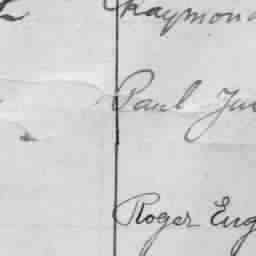 Raymond
Paul
Roger Eug